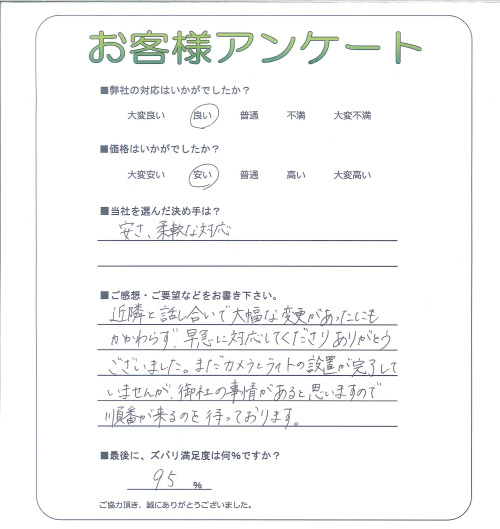 お客様アンケート
■弊社の対応はいかがでしたか？
大変良い 良い 普通 不満 大変不満
■価格はいかがでしたか？
大変安い 安い 普通 高い 大変高い
■当社を選んだ決め手は？
安さ、柔軟な対応
■ご感想・ご要望などをお書き下さい。
近隣と話し合いで大幅な変更があったにも
かかわらず、早急に対応してくださりありがとう
ございました。まだカメラとライトの設置が完了して
いませんが、御社の事情があると思いますので
順番が来るのを待っております。
■最後に、ズバリ満足度は何％ですか？
95 ％
ご協力頂き、誠にありがとうございました。